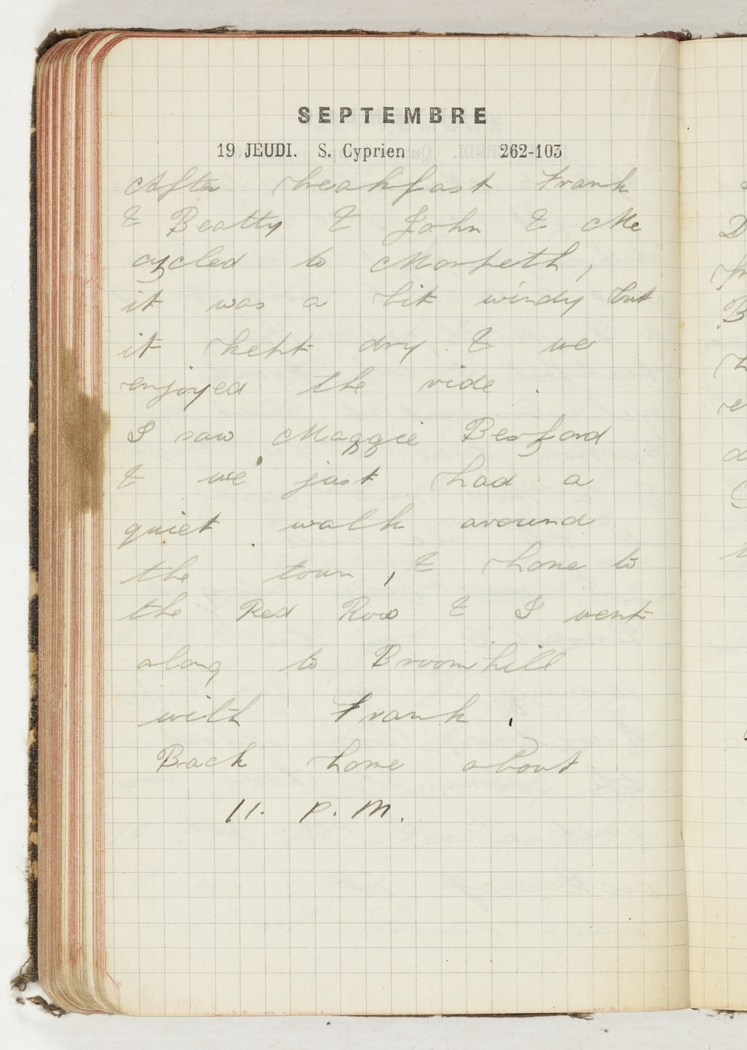 SEPTEMBRE
19 JEUDI. S. Cyprien 262-103
After breakfast Frank
& Beatty & John & Me
cycled to Morpeth,
it was a bit windy but
it kept dry & we
enjoyed the ride.
I saw Maggie Besford
& we just had a
quiet walk around
the town, & home to
the Red Row & I went
along to Broomhill
with Frank.
Back home about
11. P.M.